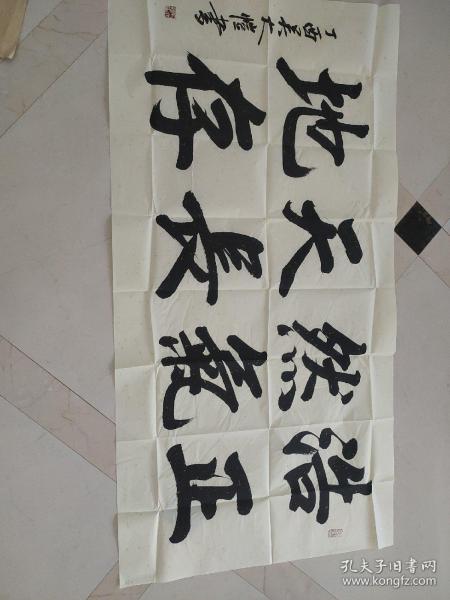 浩然天地
正氣長存
丁酉吴大愷書
孔夫子旧书网
www.kongfz.com